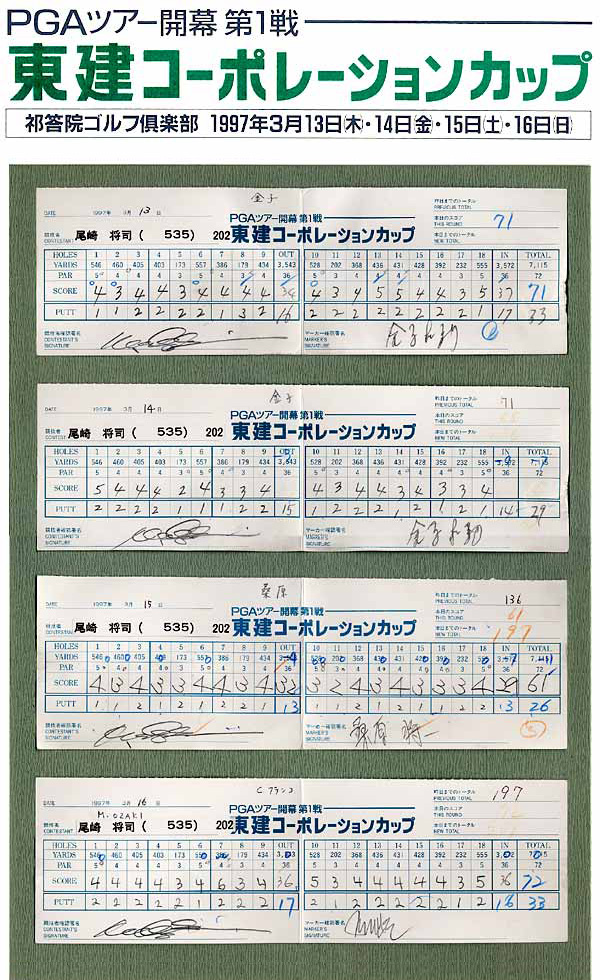 PGAツアー開幕 第1戦
東建コーポレーションカップ
祁答院ゴルフ倶楽部 1997年3月13日(木)・14日(金)・15日(土)・16日(日)
金子
DATE 1997年 3月 13 日
PGAツアー開幕第1戦
昨日までのトータル
PREVIOUS TOTAL
本日のスコア
THIS ROUND 71
本日までのトータル
NEW TOTAL
競技者
CONTESTANT 尾崎 将司 ( 535) 202 東建コーポレーションカップ
HOLES 1 2 3 4 5 6 7 8 9 OUT 10 11 12 13 14 15 16 17 18 IN TOTAL
YARDS 546 460 405 403 173 557 386 179 434 3,543 528 202 355 436 431 428 392 232 555 3,572 7,115
PAR 5 4 4 4 3 5 4 3 4 36 5 3 4 4 4 4 4 3 5 36 72
SCORE 4 3 4 4 3 4 4 4 4 34 4 3 4 5 5 4 4 3 5 37 71
PUTT 1 1 2 2 2 2 1 3 2 16 2 2 2 2 2 2 2 2 1 17 33
競技者確認署名
CONTESTANT'S
SIGNATURE
マーカー確認署名
MARKER'S
SIGNATURE
金子
DATE 1997年 3月 14 日
PGAツアー開幕第1戦
昨日までのトータル
PREVIOUS TOTAL 71
本日のスコア
THIS ROUND
本日までのトータル
NEW TOTAL
競技者
CONTESTANT 尾崎 将司 ( 535) 202 東建コーポレーションカップ
HOLES 1 2 3 4 5 6 7 8 9 OUT 10 11 12 13 14 15 16 17 18 IN TOTAL
YARDS 546 460 405 403 173 557 386 179 434 3,543 528 202 355 436 431 428 392 232 555
PAR 5 4 4 4 3 5 4 3 4 36 5 3 4 4 4 4 4 3 5 36 72
SCORE 5 4 4 4 2 4 3 3 4 4 3 4 4 3 4 3 3 4
PUTT 2 2 2 2 1 1 1 2 2 15 1 2 2 2 1 2 1 2 1 14 29
競技者確認署名
CONTESTANT'S
SIGNATURE
マーカー確認署名
MARKER'S
SIGNATURE
桑原
DATE 1997年 3月 15 日
PGAツアー開幕第1戦
昨日までのトータル
PREVIOUS TOTAL 136
本日のスコア
THIS ROUND 61
本日までのトータル
NEW TOTAL 197
競技者
CONTESTANT 尾崎 将司 ( 535) 202 東建コーポレーションカップ
HOLES 1 2 3 4 5 6 7 8 9 OUT 10 11 12 13 14 15 16 17 18 IN TOTAL
YARDS 173 557 386 179 434
PAR 5 4 4 4 3 5 4 3 4 36 5 3 4 4 4 4 4 3 5 36 72
SCORE 4 3 4 3 3 4 4 3 4 32 3 2 4 3 4 3 3 3 4 29 61
PUTT 1 1 2 1 2 1 2 1 2 13 1 1 2 1 2 1 1 2 2 13 26
競技者確認署名
CONTESTANT'S
SIGNATURE
マーカー確認署名
MARKER'S
SIGNATURE 桑原 将一
C フランコ
DATE 1997年 3月 16 日
PGAツアー開幕第1戦
昨日までのトータル
PREVIOUS TOTAL 197
本日のスコア
THIS ROUND 72
本日までのトータル
NEW TOTAL
M. OZAKI
競技者
CONTESTANT 尾崎 将司 ( 535) 202 東建コーポレーションカップ
HOLES 1 2 3 4 5 6 7 8 9 OUT 10 11 12 13 14 15 16 17 18 IN TOTAL
YARDS 460 405 403 173 179 434 528 202 355 436 431 428 392 232 555
PAR 5 4 4 4 3 5 4 3 4 36 5 3 4 4 4 4 4 3 5 36 72
SCORE 4 4 4 4 3 4 6 3 4 36 5 3 4 4 4 4 4 3 5 36 72
PUTT 2 2 2 2 2 1 2 2 2 17 2 1 2 2 2 2 2 1 2 16 33
競技者確認署名
CONTESTANT'S
SIGNATURE
マーカー確認署名
MARKER'S
SIGNATURE